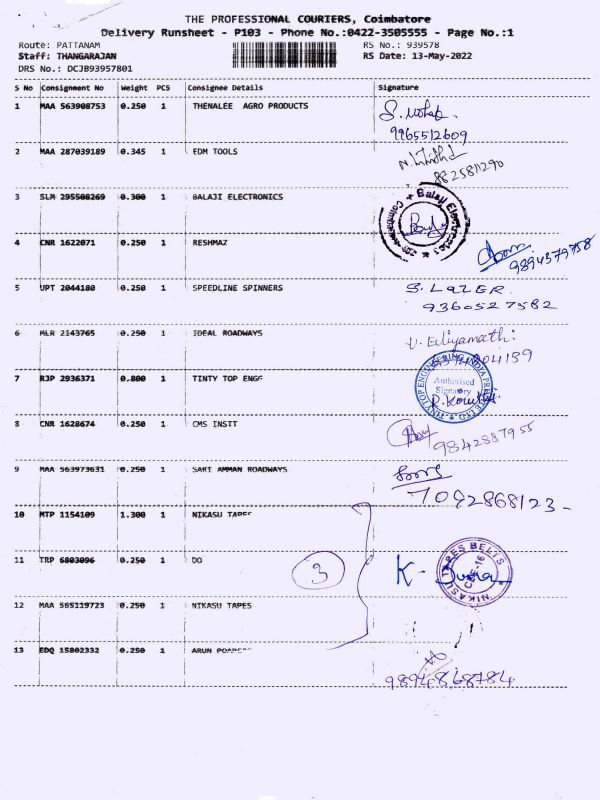 THE PROFESSIONAL COURIERS, Coimbatore
Delivery Runsheet - P103 - Phone No.:0422-3505555 - Page No.:1
Route: PATTANAM RS No.: 939578
Staff: THANGARAJAN RS Date: 13-May-2022
DRS No.: DCJB93957801
S No Consignment No Weight PCS Consignee Details Signature
1 MAA 563908753 0.250 1 THENALEE AGRO PRODUCTS
9965512609
2 MAA 287039189 0.345 1 EDM TOOLS
8825811290
3 SLM 295508269 0.300 1 BALAJI ELECTRONICS
4 CNR 1622071 0.250 1 RESHMAZ
9894379758
5 UPT 2044180 0.250 1 SPEEDLINE SPINNERS S. LAZER
9360527582
6 MLR 2143765 0.250 1 IDEAL ROADWAYS
7 RJP 2936371 0.800 1 TINTY TOP ENGG
Authorised
Signatory
8 CNR 1628674 0.250 1 CMS INSTT
9842887955
9 MAA 563973631 0.250 1 SARI AMMAN ROADWAYS
7092868123-
10 MTP 1154109 1.300 1 NIKASU TAPES
11 TRP 6803096 0.250 1 DO 3 K.
NIKASU TAPES BELTS
12 MAA 565119723 0.250 1 NIKASU TAPES
13 EDQ 15802332 0.250 1 ARUN
9894868784